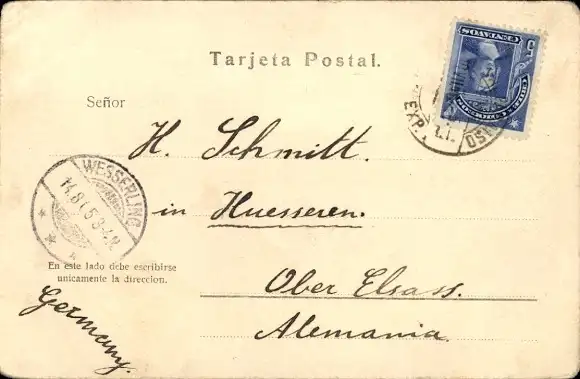 Tarjeta Postal.
5
CENTAVOS
Señor
EXP.
H. Schmitt.
WESSERLING
in Huesseren.
En este lado debe escribirse
unicamente la direccion.
Ober Elsass.
Germany.
Alemania.